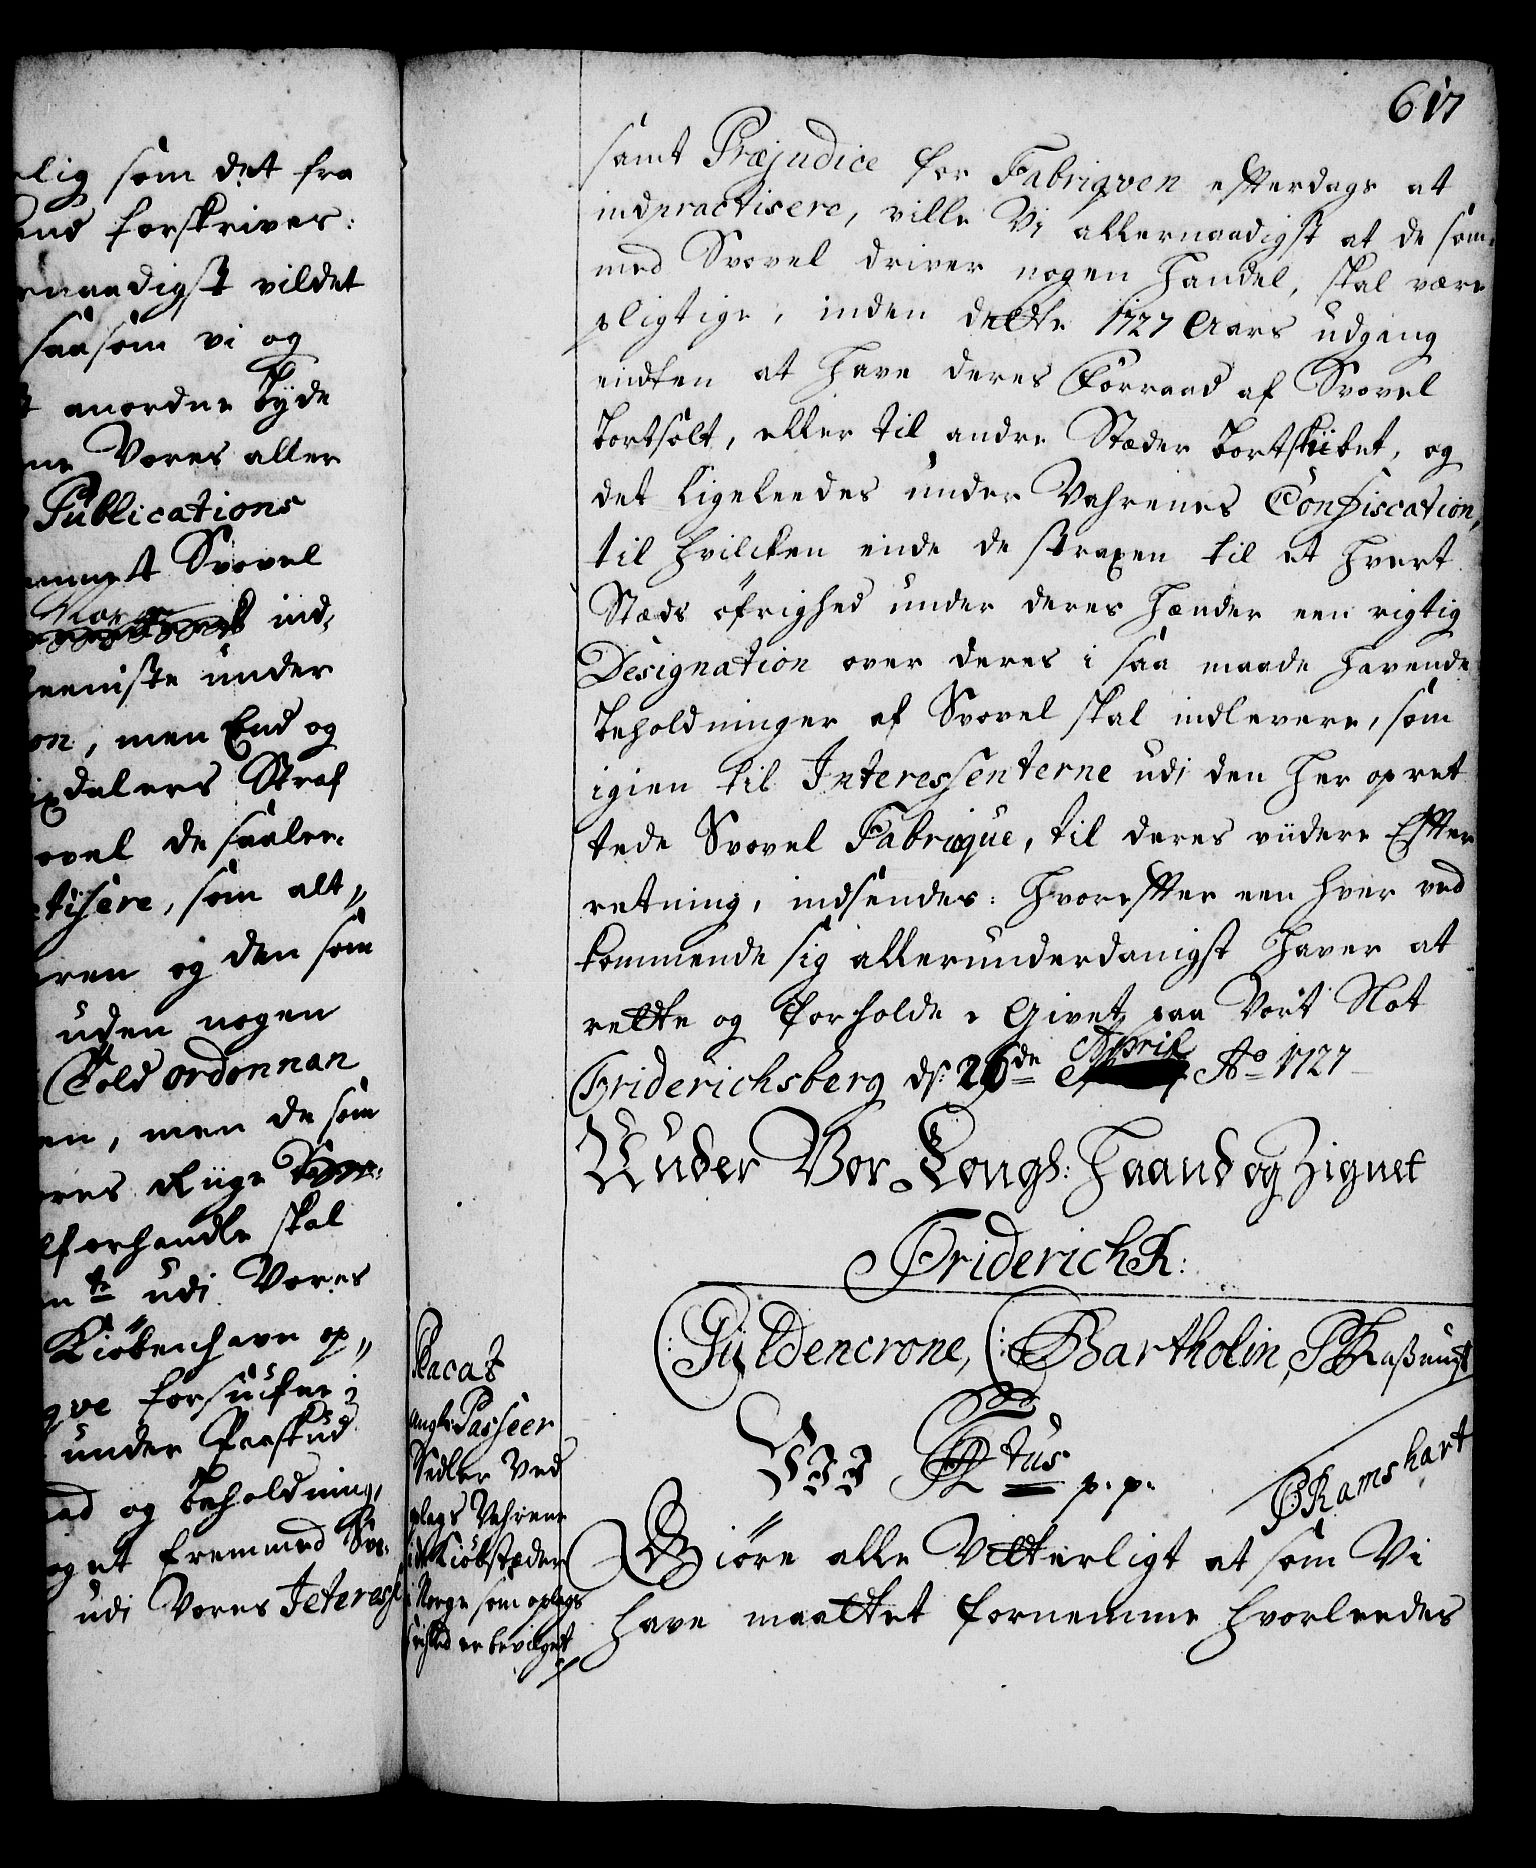 lig som det fra
forskrives:
naadigst vildet
saasom vi og
anordne byde
Vores aller
Publications
Svovel
ind,
under
on, men End og
dalers Straf
ovel de saaler,
tisere, som alt,,
eren og den som
uden nogen
Told ordonnan
en, men de som
eres Riige
forhandle skal
udi Vores
Kiöbenhavn op,,
qve forsiufne;
under Paaskud
og beholdning,
oget fremmed Svo,
udi Vores
617
samt Præjudice for Fabriqven efterdags at
indpractisere, ville Vi allernaadigst at de som
med Svovel driver nogen Handel, skal være
pligtige, inden dette 1727 Aars udgang
endten at have deres Forraad af Svovel
bortsolt, eller til andre Stæder bortskibet, og
det ligeleedes under Vahrenes Confiscation,
til hvilcken ende de straxen til et hvert
Stæds öfrighed under deres Hænder een rigtig
Designation over deres i saa maade havende
beholdninger af Svovel skal indlevere, som
igien til Interessenterne udi den her opret
tede Svovel Fabrique, til deres viidere Efter
retning, indsendes: Hvorefter een hver ved
kommende sig allerunderdanigst haver at
rette og forholde. Givet paa Vort Slot
Friderichsberg ds: 26de April Ao 1727
Under Vor Kongl: Haand og Zignet
Friderich R:
Gyldencrone, Bartholin,
Ramshart
Placat
angl: Passeer
Sedler Ved
plags Vahrene
i de Kiöbstæder
i Norge som oplags
frihed er bevilget
V F 4 Tus p. p.
Giöre alle Vitterligt at som Vi
have maattet fornemme hvorleedes